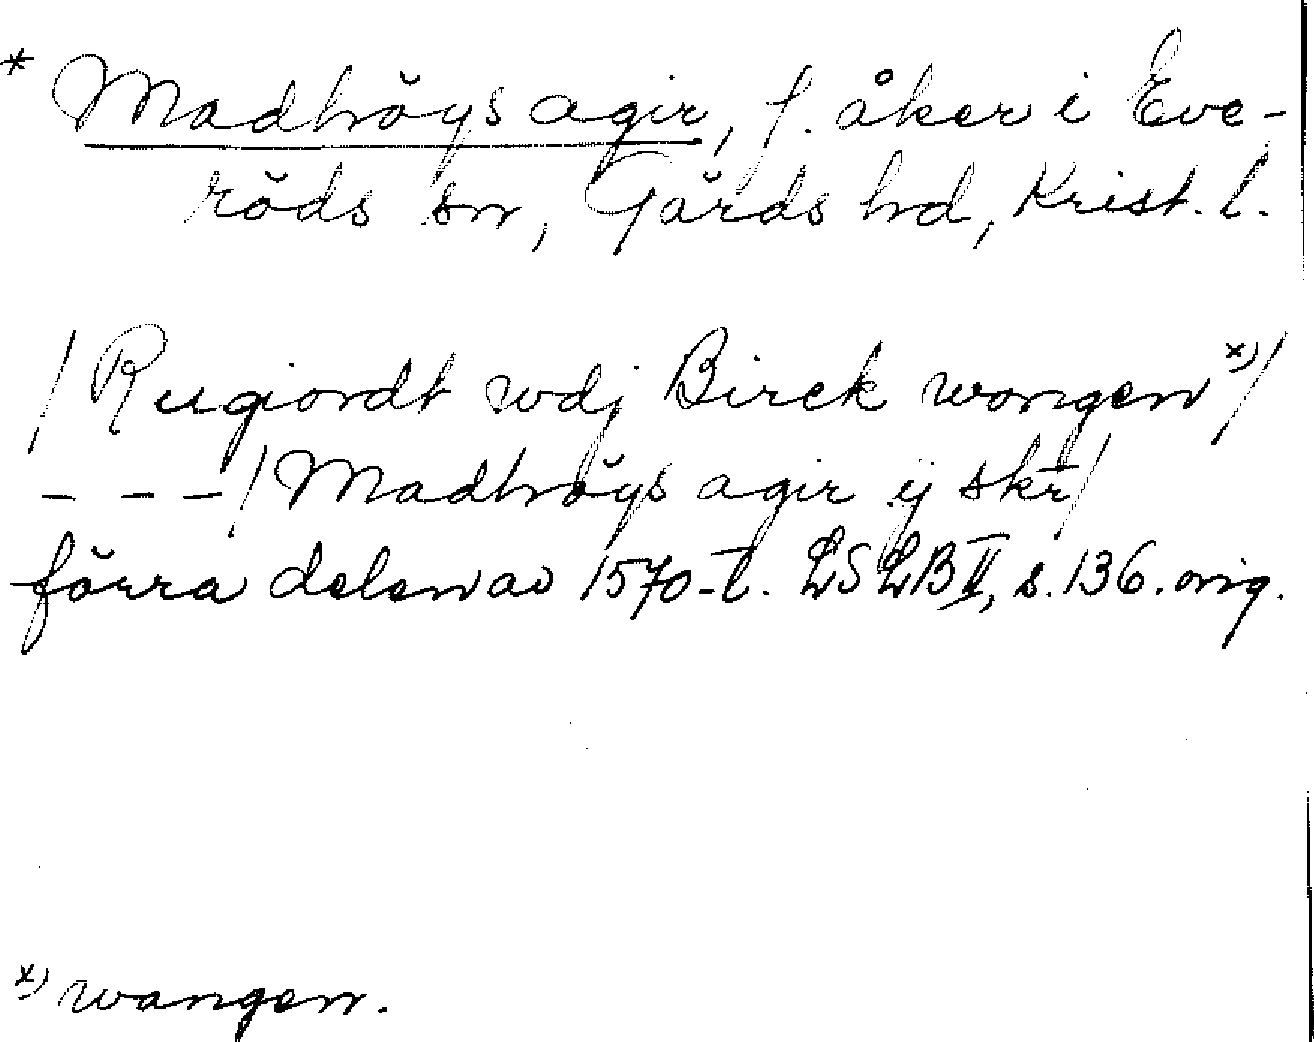 * Madhöys agir, f. åker i Eve-
röds sn, Gärds hd, Krist. l.
/Rugiordt wdj Birck wongen x)/
- - -/Madhöys agir ij skr/
förra delen av 1570-t. LSLB II, s. 136. orig.
x) wangen.